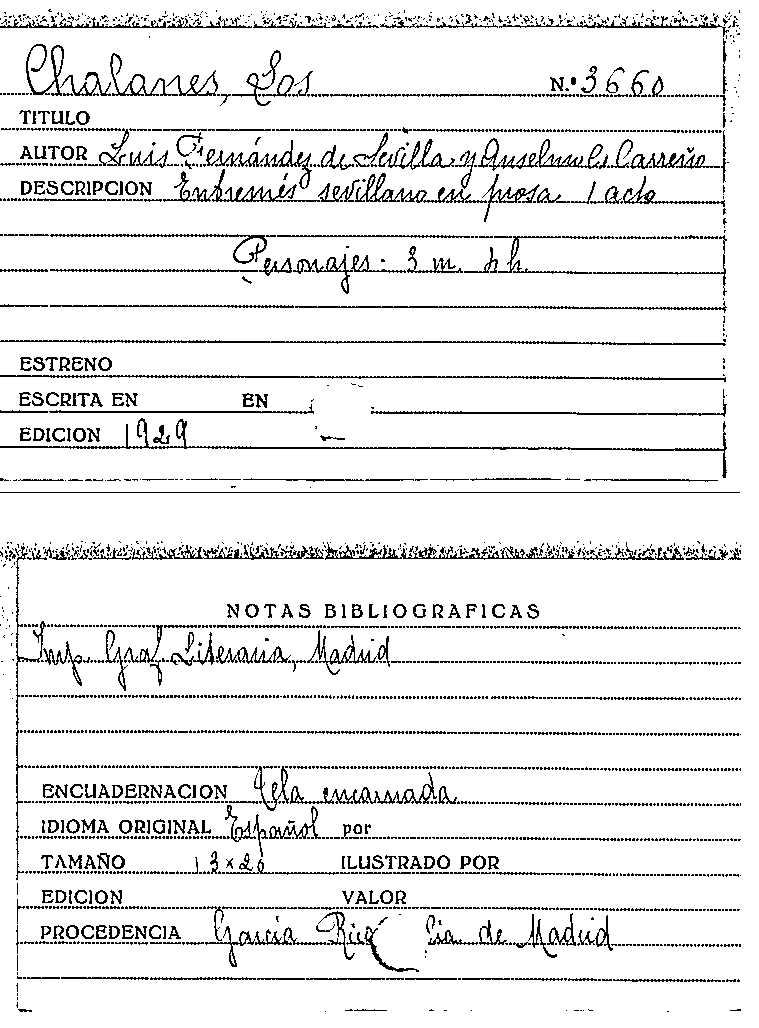 Chalanes, Los N.º 3660
TITULO
AUTOR Luis Fernández de Sevilla y Anselmo C. Carreño
DESCRIPCION Entremés sevillano en prosa 1 acto
Personajes: 3 m. 4 h.
ESTRENO
ESCRITA EN EN
EDICION 1929
NOTAS BIBLIOGRAFICAS
Imp. Graf Literaria, Madrid
ENCUADERNACION Tela encarnada
IDIOMA ORIGINAL Español por
TAMAÑO 13 x 20 ILUSTRADO POR
EDICION VALOR
PROCEDENCIA García Rico de Madrid